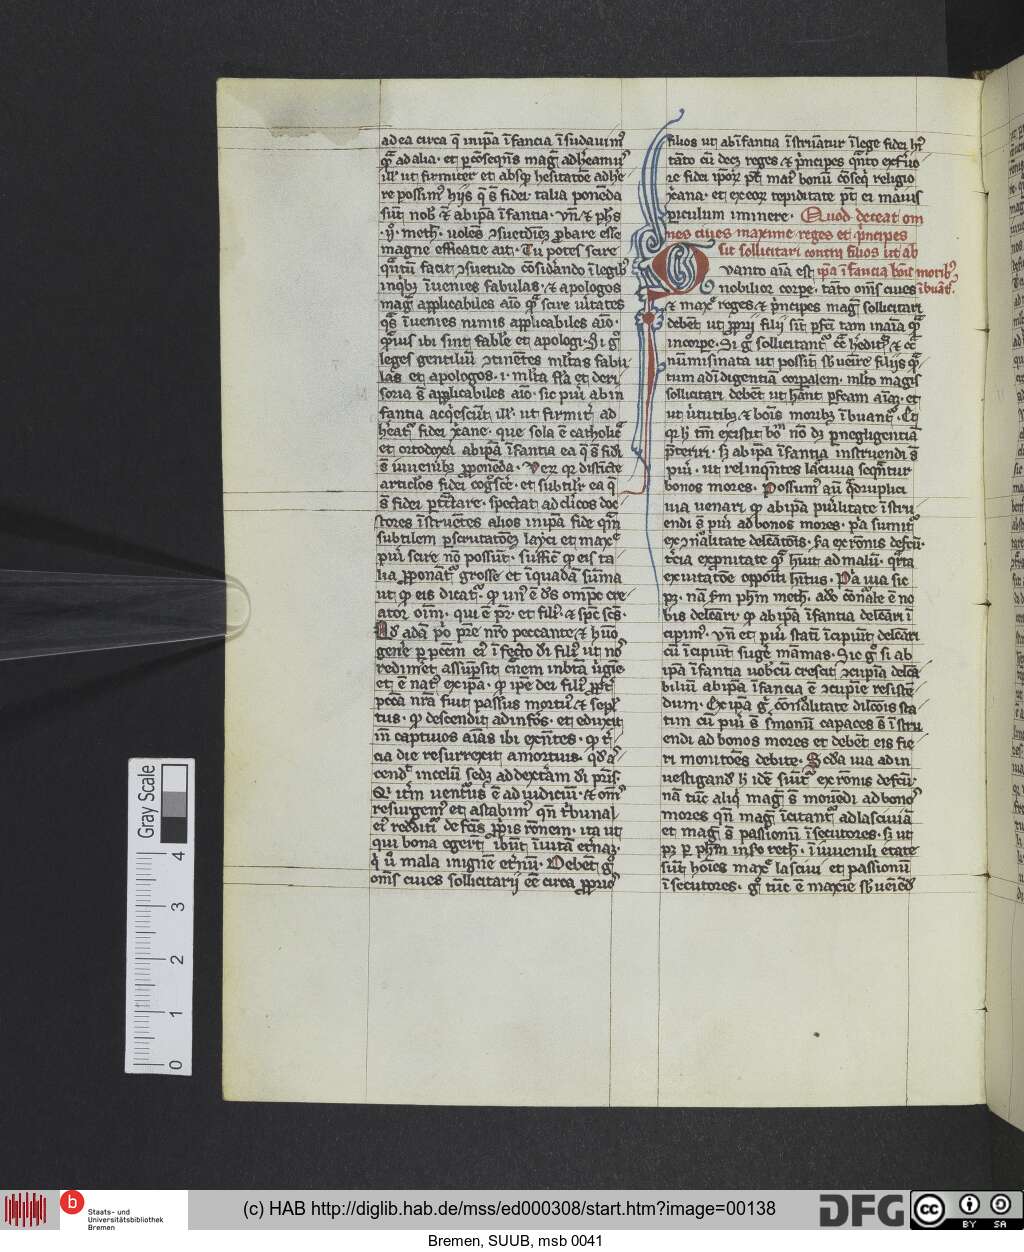 ad ea circa q̄ in ip̄a īfancia īsudauim᷒
qͣ ad alia · et ꝑ cōseqn̄s mag̃ adh̓eamu᷒
ill᷒ ut firmiter et absqꝫ hesitatōe adhe
re possim᷒ hijs q̄ s̄ fidei · talia ponēda
sūt nob᷒ ab ip̄a īfancia · vn̄ et ph̄s
meth · uolēs ꝯsuetudīeꝫ ꝓbare esse
magne efficatie ait · Tu potes scire
qͣntū facit ꝯsuetudo cōsid̓ando ī legibꝫ
in qͥbꝫ īuenies fabulas · et apologos
mag̃ applicabiles aīo qͣ scire u̓itates
īuenies nimis applicabiles aīo ·
ibi sint fable et apologi · Si g̊
leges gentiliū ꝯtinētes ml̓tas fabu
las et apologos · i · ml̓ta fl̄a et deri
soria s̄ applicabiles aīo · sic pu̓i ab in
fantia acq̓escūt ill᷒ · ut firmit̓ ad
h̓eāt fidei xp̄iane · que sola ē catholicͣ
et ortodoxa ab ip̄a īfantia ea q̄ s̄ fidi
s̄ iuuenibꝫ ꝓponēda · Veꝝ qꝛ disticte
articlos fidei cog̓sc̓e · et subtilit̓ ea q̄
s̄ fidei ꝑt̓ctare · spectat ad cl̓icos doc
tores īstruētes alios in ip̄a fide
subtilem ꝑscrutatōeꝫ layci et maxᵉ
pu̓i scire nō possūt · suffic̄ ꝙ eis ta
lia ꝓponātͬ grosse et ī quadā sūma
ut ꝙ eis dicatͬ · ꝙ vn᷒ ē d̄s om̄ps cre
ator oīm · qui ē pr̄ · et fili᷒ · et sp̄c sc̄s ·
Ad adā pͥo pr̄e nr̄o peccante et hūo
gene᷒ ꝑ pccm̄ ei᷒ īfecto di fili᷒ ut nos
redimet assūpsit c̓nem in bt̄a u̓gīe
et ē nat᷒ ex ip̄a · ꝙ ip̄e dei fili᷒ ꝓpt̓
pccā nr̄a fuit passus mortu᷒ et sepl̓
tus · ꝙ descendit ad inf̄os · et eduxit
īn captiuos aīas ibi exn̄tes · ꝙ t̓
cia die resurrexit a mortuis · qd̓ as
cend̓t in celū sedꝫ ad dext̓am di pr̄is ·
Qͥ it̓m ventur᷒ ē ad iudiciū · et om̄s
resurgem᷒ et astabim᷒ qn̄ t̓bunal
ei᷒ reddit̓i de fc̄is ꝓpis rōnem · ita ut
qui bona eger̄t ibūt ī uitā et̓naꝫ ·
qͥ u̓ mala in ignē et̓nū · Debēt g̊
om̄s ciues sollicitarij eē circa ꝓprios
filios ut ab īfantia īstruātur ī lege fidei hi᷒
tāto cū decꝫ reges et pͥncipes qͣnto ex feruo
re fidei ip̄oꝝ pt̄ mai᷒ bonū cōseqͥ religio
xp̄iana · et ex eoꝝ tepiditate pt̄ ei maius
ꝑiculum iminere · Quod deceat om
nes ciues maxime reges et pͥncipes
sic sollicitari contra filios ut ab
Quanto aīa est ip̄a īfancia bōis moribꝫ
nobilior corpe · tāto om̄s ciues ībuāt᷒ ·
et maxᵉ reges · et pͥncipes mag̃ sollicitari
debēt ut ꝓprij filij sūt pfc̄i tam in aīa qͣ
in corpe · Si g̊ sollicitantͬ cͥca h̓editꝫ et cͥca
nūmismata ut possīt sb̓uēire filijs qͣ
tum ad īdigentiā corꝑalem · ml̓to magis
sollicitari debēt ut hānt ꝑfeam aīaꝫ · et
ut u̓tutibꝫ et bōis moribꝫ ībuantͬ · Et
qꝛ h̓ tm̄ existit bo᷒ nō dꝫ ꝑ negligentiā
p̄teriri · sꝫ ab ip̄a īfantia instruendi s̄
pu̓i · ut relinqͦntes lasciuia seqͣntur
bonos mores · Possum᷒ aū qͣdruplici
uia uenari ꝙ ab ip̄a pu̓ilitate īstru
endi s̄ pu̓i ad bonos mores · pͥa sumitͬ
ex ꝯnͣlitate delc̄atōis · sͣ ex rōnis defcū ·
t̓cia ex ꝓnitate qͣ h̄nt ad malū · qͣrta
ex uitatōe oppoiti h̄itus · Pͥa uia sic
pꝫ · nā sm̄ ph̄m meth · adō cōnͣle ē no
bis delc̄ari ꝙ ab ip̄a īfantia delc̄ari ī
cipim᷒ · vn̄ et pu̓i statī īcipiūt delc̄ari
cū īcipiūt suge māmas · Sic g̊ si ab
ip̄a īfantia nobcū crescit ꝯcupia delc̄ta
biliū ab ip̄a īfancia ē ꝯcupīe resistē
dum · Ex ip̄a g̊ cōnͣlitate dilcōis sta
tim cū pu̓i s̄ sermonū capaces s̄ īstru
endi ad bonos mores et debēt eis fie
ri monitōes debite · Scd̓a uia ad in
uestigand̓ h̓ idē sūitͬ ex rōnis defcū ·
nā tūc aliqͥ mag̃ s̄ monēdi ad bonos
mores qn̄ mag̃ īcitantͬ ad lasciuiā
et mag̃ s̄ passionū īsecutores · sꝫ ut
pꝫ ꝑ ph̄m in sc̄o reth · ī iuuenili etate
sūt hoīes maxᵉ lasciui et passionū
īsecutores · g̊ tūc ē maxīe sb̓uēiēd̓
Gray Scale
4
3
2
1
0
Staats- und
Universitätsbibliothek
Bremen
(c) HAB http://diglib.hab.de/mss/ed000308/start.htm?image=00138
DFG
CC BY SA
Bremen, SUUB, msb 0041